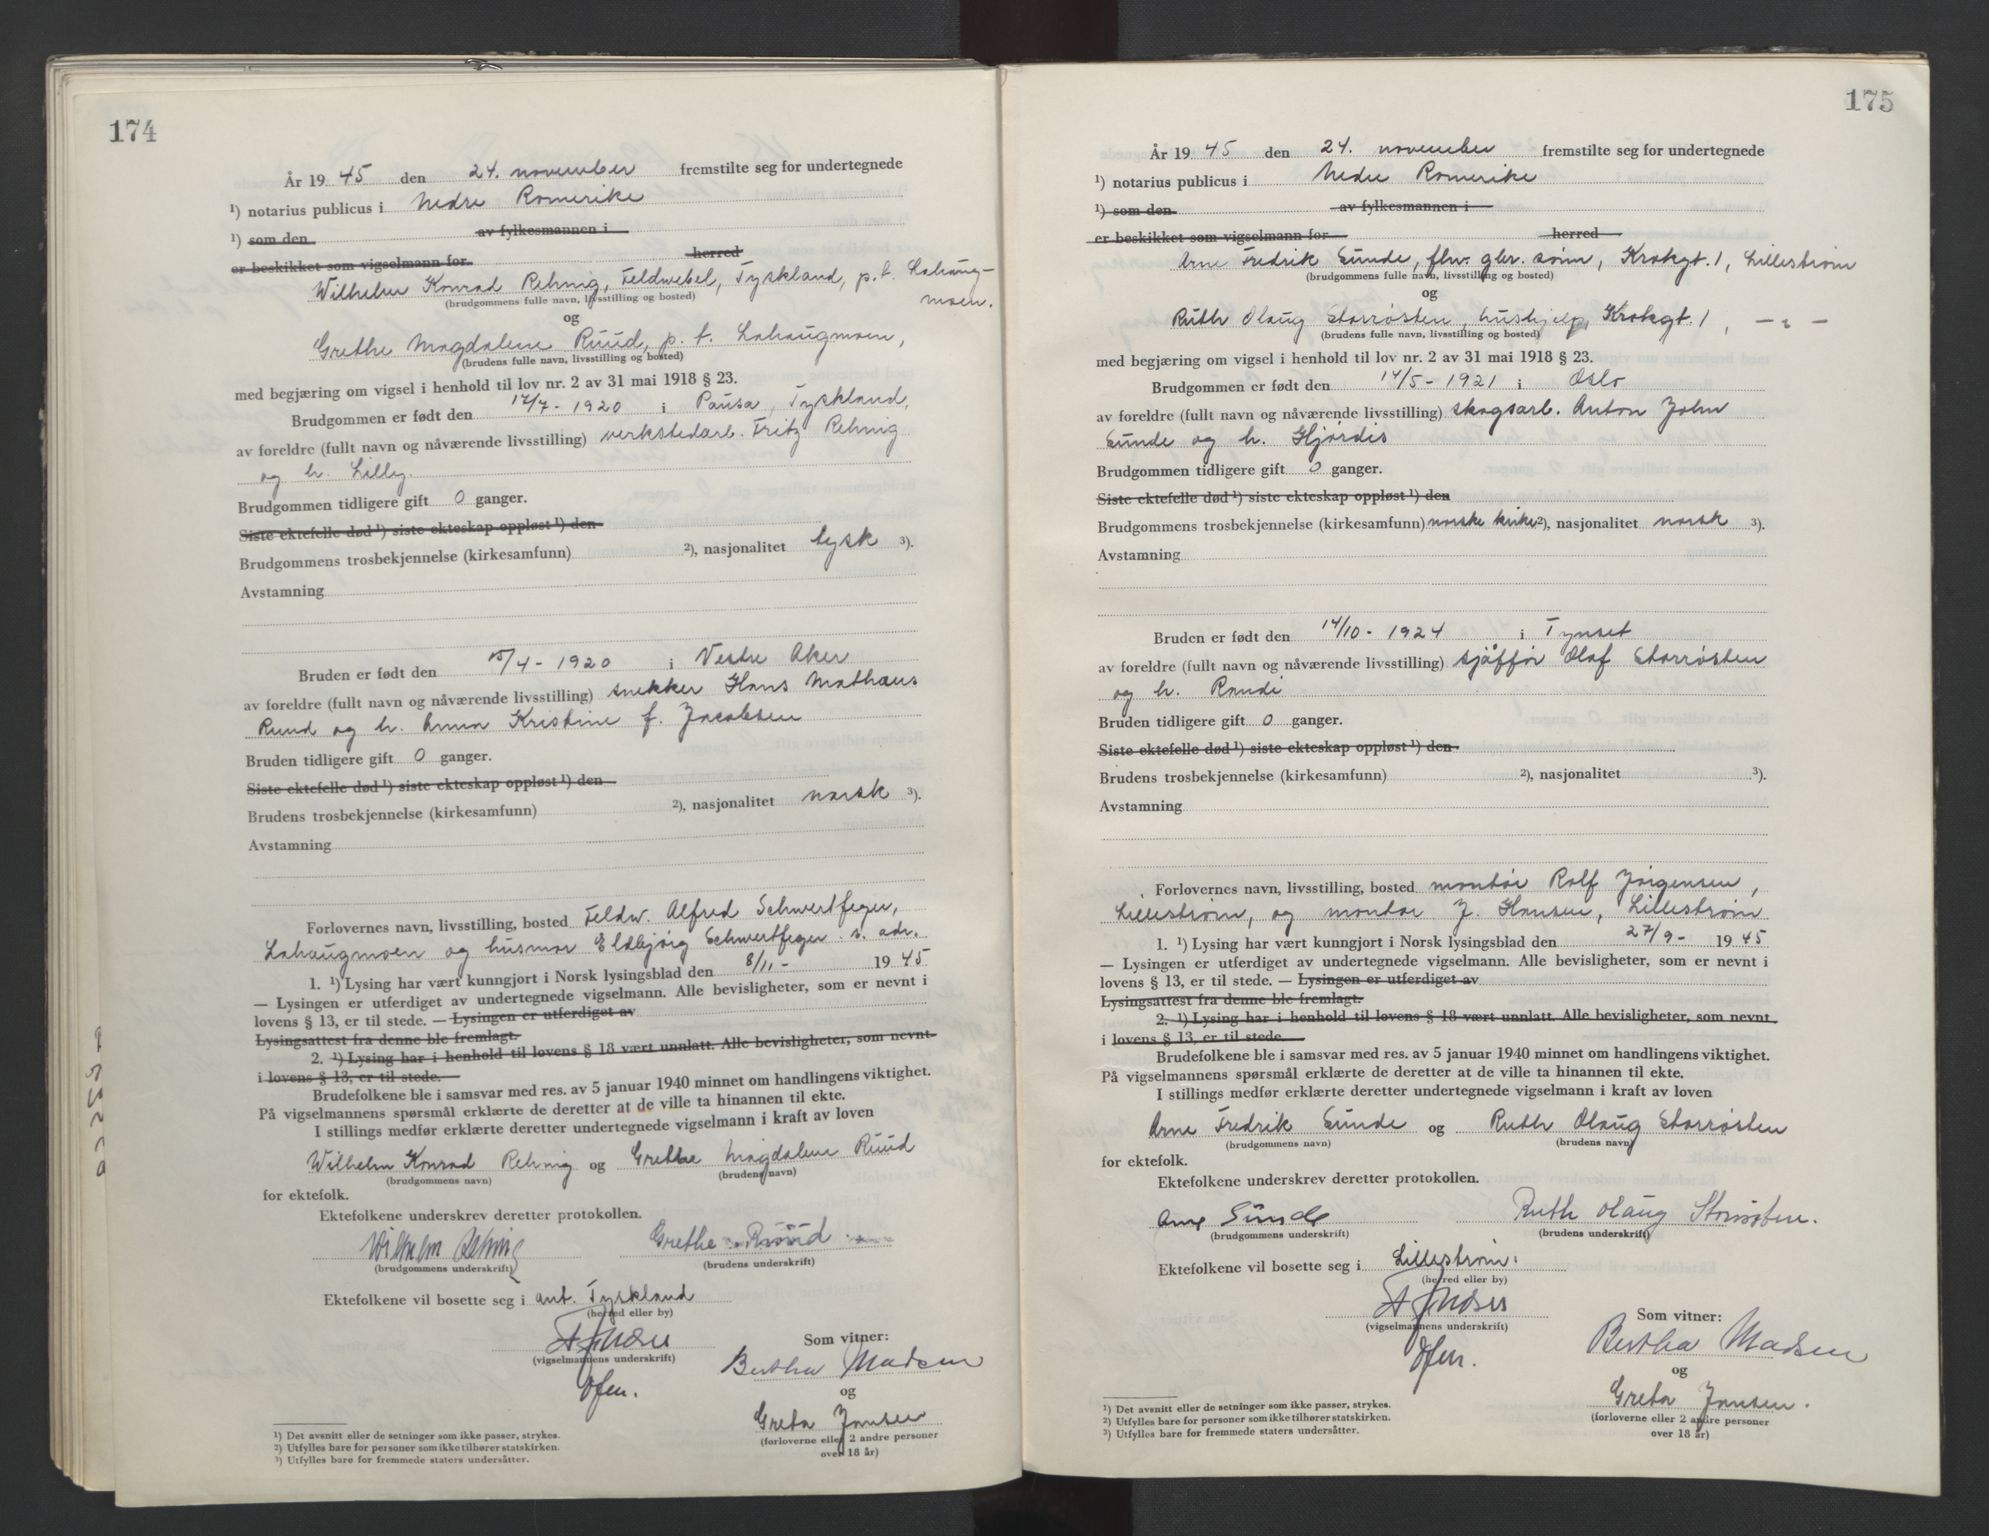 174
År 19 45 den 24. november fremstilte seg for undertegnede
¹) notarius publicus i Nedre Romerike
¹) som den av fylkesmannen i
er beskikket som vigselmann for herred
Wilhelm Konrad Rehnig, Feldwebel, Tyskland, p.t. Lahaug-
(brudgommens fulle navn, livsstilling og bosted) moen.
og
Grethe Magdalene Ruud, p. t. Lahaugmoen,
(brudens fulle navn, livsstilling og bosted)
med begjæring om vigsel i henhold til lov nr. 2 av 31 mai 1918 § 23.
Brudgommen er født den 17/7 - 1920 i Pausa, Tyskland,
av foreldre (fullt navn og nåværende livsstilling) verkstedarb. Fritz Rehnig
og h. Lilly.
Brudgommen tidligere gift 0 ganger.
Siste ektefelle død ¹) siste ekteskap oppløst ¹) den
Brudgommens trosbekjennelse (kirkesamfunn) ²), nasjonalitet tysk ³).
Avstamning
Bruden er født den 15/4 - 1920 i Vestre Aker
av foreldre (fullt navn og nåværende livsstilling) snekker Hans Mathæus
Ruud og h. Anna Kristine f. Jacobsen
Bruden tidligere gift 0 ganger.
Siste ektefelle død ¹) siste ekteskap oppløst ¹) den
Brudens trosbekjennelse (kirkesamfunn) ²), nasjonalitet norsk ³).
Avstamning
Forlovernes navn, livsstilling, bosted Feldw. Alfred Schwertfeger,
Lahaugmoen og husmor Eldbjørg Schwertfeger s. adr.
1. ¹) Lysing har vært kunngjort i Norsk lysingsblad den 8/11 - 19 45
— Lysingen er utferdiget av undertegnede vigselmann. Alle bevisligheter, som er nevnt i
lovens § 13, er til stede. — Lysingen er utferdiget av
Lysingsattest fra denne ble fremlagt.
2. ¹) Lysing har i henhold til lovens § 18 vært unnlatt. Alle bevisligheter, som nevnt
i lovens § 13, er til stede.
Brudefolkene ble i samsvar med res. av 5 januar 1940 minnet om handlingens viktighet.
På vigselmannens spørsmål erklærte de deretter at de ville ta hinannen til ekte.
I stillings medfør erklærte deretter undertegnede vigselmann i kraft av loven
Wilhelm Konrad Rehnig og Grethe Magdalene Ruud
(brudgommens navn) (brudens navn)
for ektefolk.
Ektefolkene underskrev deretter protokollen.
Wilhelm Rehnig Grethe Ruud
(brudgommens underskrift) (brudens underskrift)
Ektefolkene vil bosette seg i ant. Tyskland
(herred eller by)
(vigselmannens underskrift) Som vitner:
Bertha Madsen
og
Greta Jansen
(forloverne eller 2 andre personer
over 18 år)
¹) Det avsnitt eller de setninger som ikke passer, strykes.
²) Utfylles bare for personer som ikke tilhører statskirken.
³) Utfylles bare for fremmede staters undersåtter.
175
År 19 45 den 24. november fremstilte seg for undertegnede
¹) notarius publicus i Nedre Romerike
¹) som den av fylkesmannen i
er beskikket som vigselmann for herred
Arne Fredrik Sunde, fhv. gbr. sønn, Krokgt. 1, Lillestrøm
(brudgommens fulle navn, livsstilling og bosted)
og
Ruth Olaug Storrøsten, hushjelp, Krokgt. 1, — " —
(brudens fulle navn, livsstilling og bosted)
med begjæring om vigsel i henhold til lov nr. 2 av 31 mai 1918 § 23.
Brudgommen er født den 14/5 - 1921 i Oslo
av foreldre (fullt navn og nåværende livsstilling) skogsarb. Anton John
Sunde og h. Hjørdis
Brudgommen tidligere gift 0 ganger.
Siste ektefelle død ¹) siste ekteskap oppløst ¹) den
Brudgommens trosbekjennelse (kirkesamfunn) norske kirke ²), nasjonalitet norsk ³).
Avstamning
Bruden er født den 14/10 - 1924 i Tynset
av foreldre (fullt navn og nåværende livsstilling) sjåffør Olaf Storrøsten
og h. Randi
Bruden tidligere gift 0 ganger.
Siste ektefelle død ¹) siste ekteskap oppløst ¹) den
Brudens trosbekjennelse (kirkesamfunn) ²), nasjonalitet ³).
Avstamning
Forlovernes navn, livsstilling, bosted montør Rolf Jørgensen,
Lillestrøm, og montør J. Hansen, Lillestrøm
1. ¹) Lysing har vært kunngjort i Norsk lysingsblad den 27/9 - 19 45
— Lysingen er utferdiget av undertegnede vigselmann. Alle bevisligheter, som er nevnt i
lovens § 13, er til stede. — Lysingen er utferdiget av
Lysingsattest fra denne ble fremlagt.
2. ¹) Lysing har i henhold til lovens § 18 vært unnlatt. Alle bevisligheter, som nevnt
i lovens § 13, er til stede.
Brudefolkene ble i samsvar med res. av 5 januar 1940 minnet om handlingens viktighet.
På vigselmannens spørsmål erklærte de deretter at de ville ta hinannen til ekte.
I stillings medfør erklærte deretter undertegnede vigselmann i kraft av loven
Arne Fredrik Sunde og Ruth Olaug Storrøsten
(brudgommens navn) (brudens navn)
for ektefolk.
Ektefolkene underskrev deretter protokollen.
Arne Sunde Ruth Olaug Storrøsten.
(brudgommens underskrift) (brudens underskrift)
Ektefolkene vil bosette seg i Lillestrøm.
(herred eller by)
(vigselmannens underskrift) Som vitner:
Bertha Madsen
og
Greta Jansen.
(forloverne eller 2 andre personer
over 18 år)
¹) Det avsnitt eller de setninger som ikke passer, strykes.
²) Utfylles bare for personer som ikke tilhører statskirken.
³) Utfylles bare for fremmede staters undersåtter.